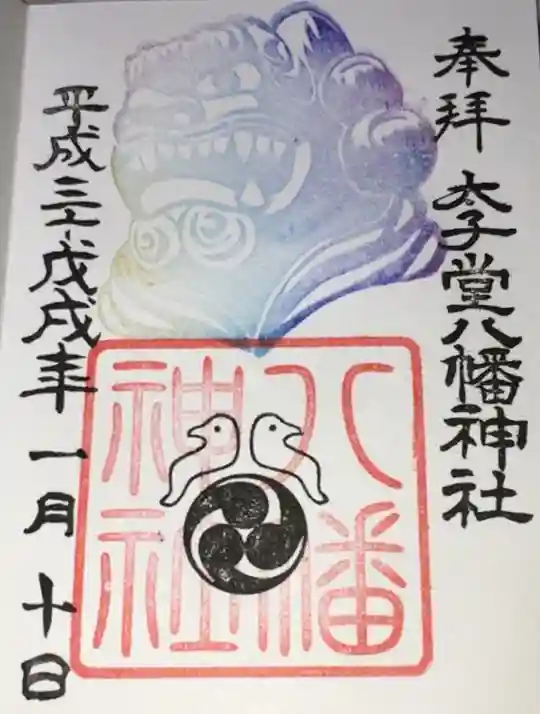 奉拝 太子堂八幡神社
八幡
神社
平成三十戊戌年 一月 十日